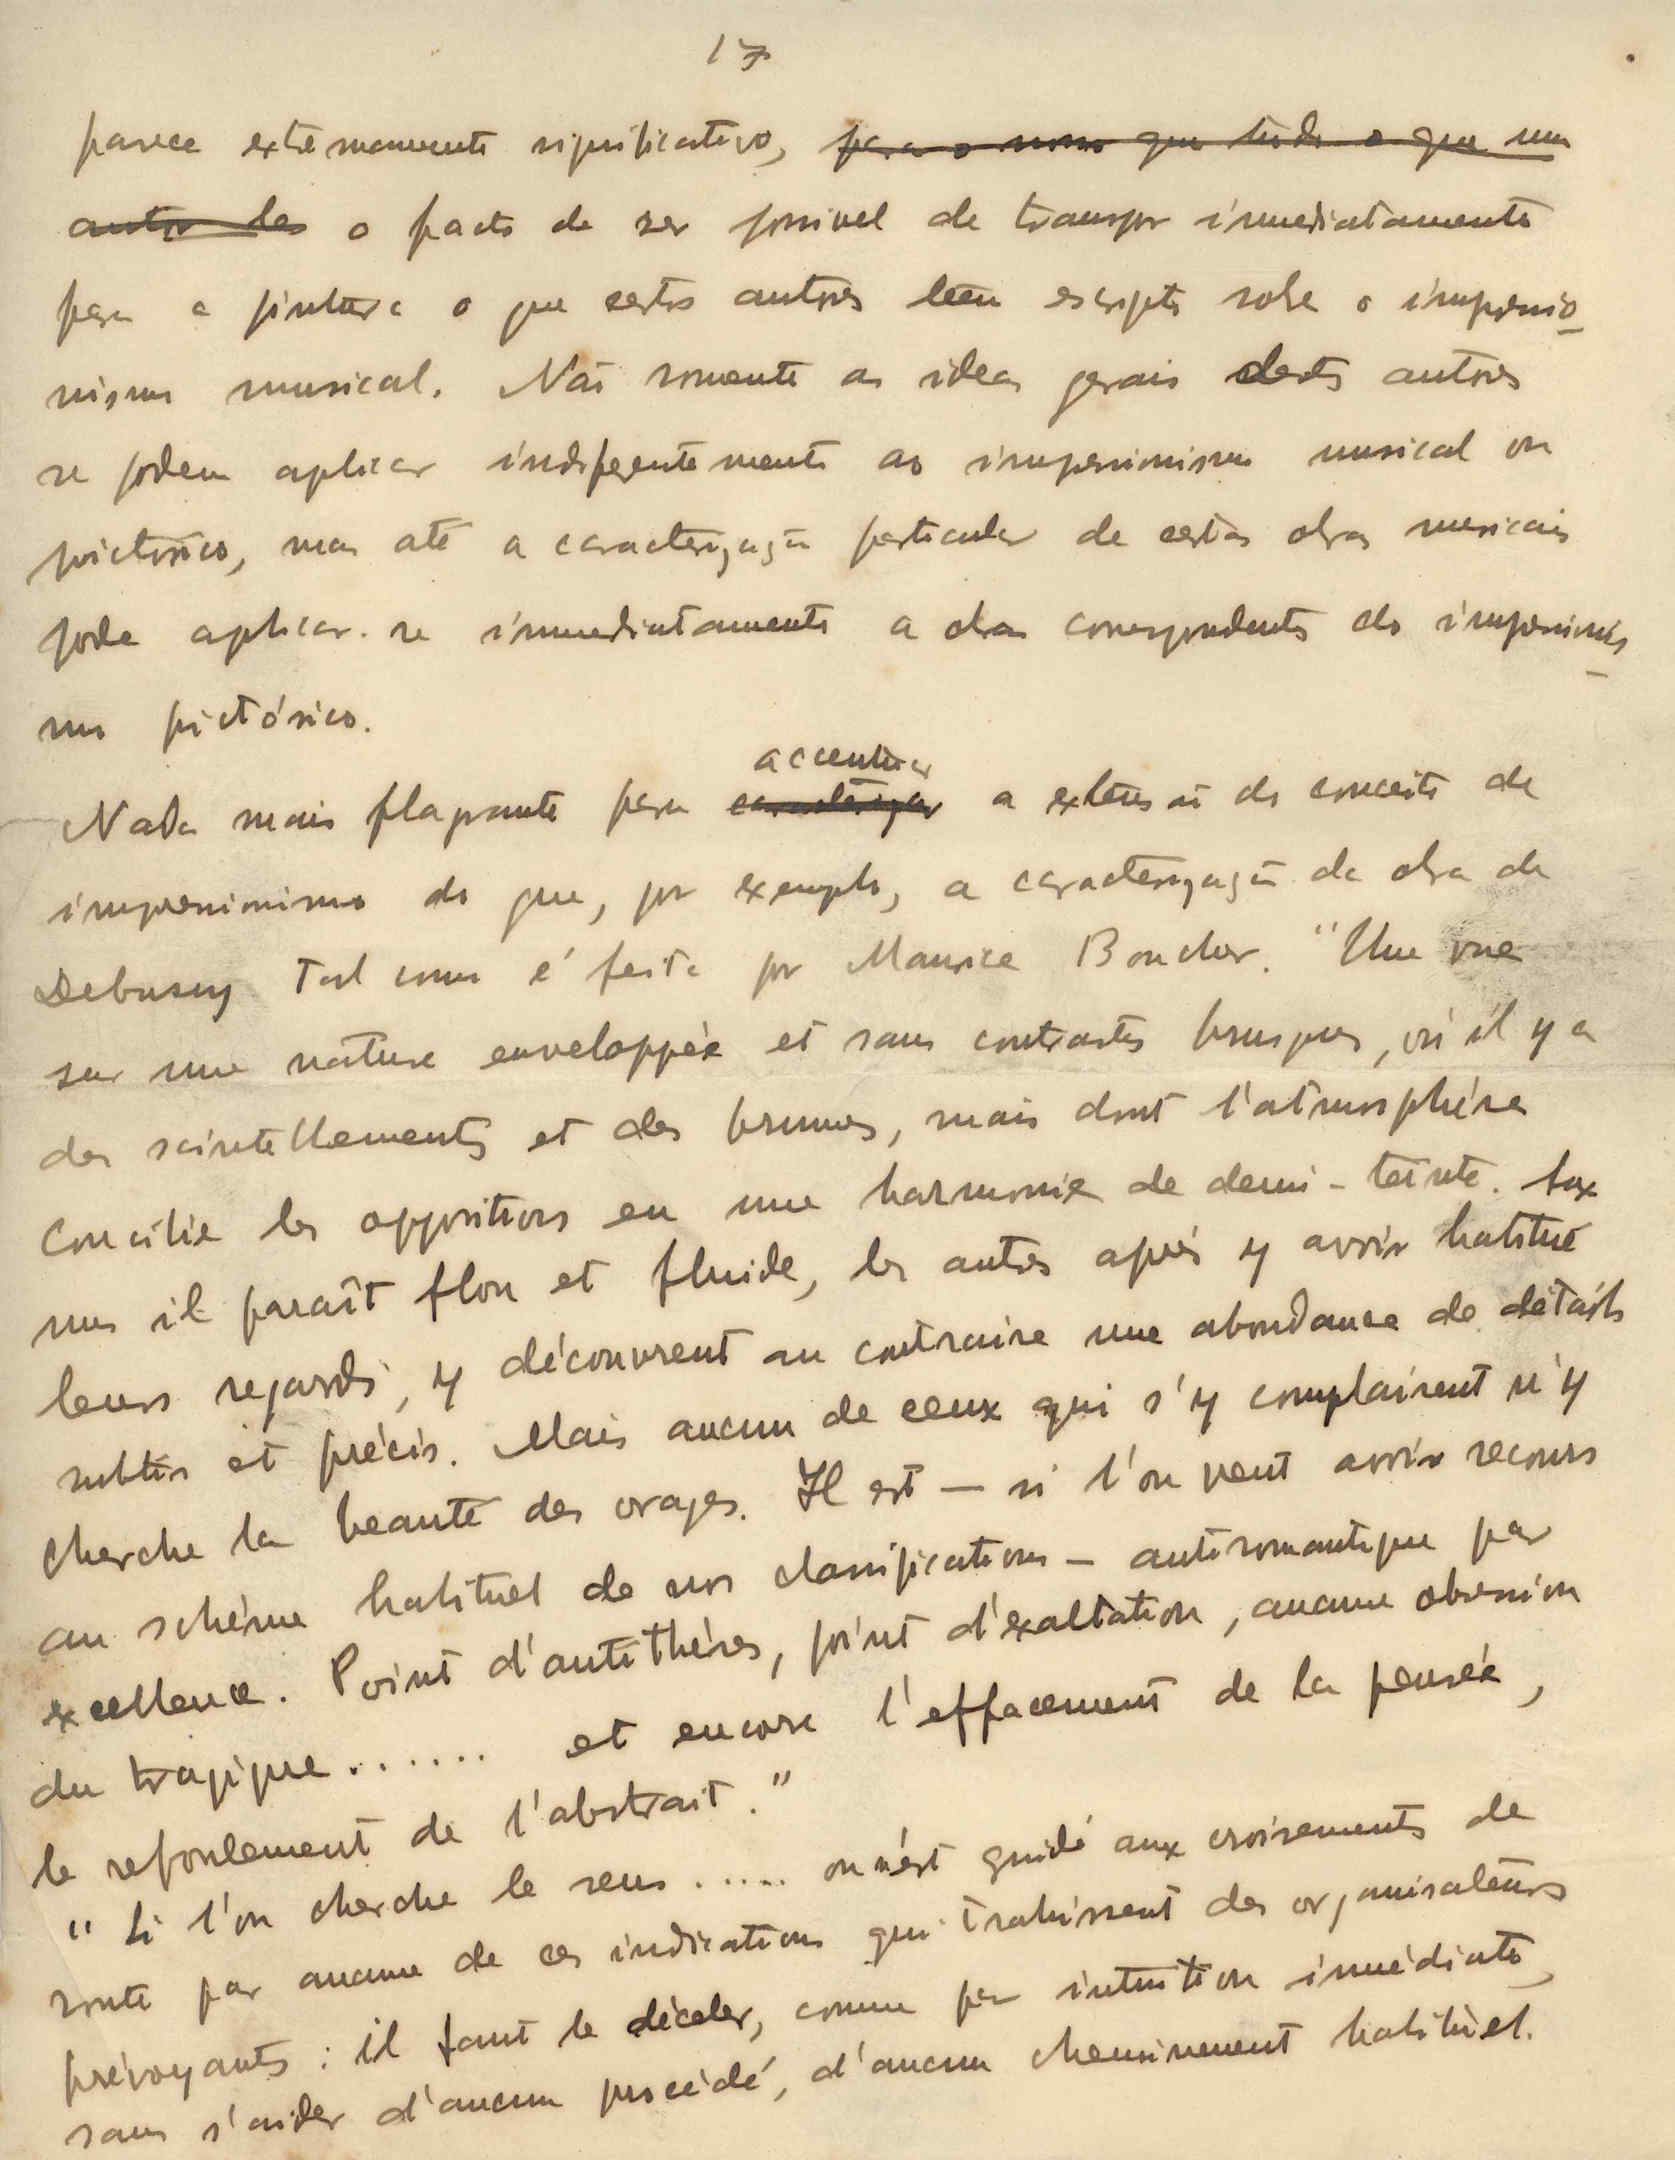 17
parece extremamente significativo, para o nosso que tudo o que um
autor les o facto de ser possivel de transpor immediatamente
para a pintura o que certos autores teem escripto sobre o impressio-
nismo musical. Não somente as ideas gerais destes autores
se podem aplicar indiferentemente ao impressionismo musical ou
pictórico, mas até a caracterização particular de certas obras musicais
pode aplicar-se immediatamente a obras correspondentes do impressionis-
mo pictórico.
accentuar
Nada mais flagrante para caracterizar a extensão do conceito de
impressionismo do que, por exemplo, a caracterização da obra de
Debussy tal como é feita por Maurice Boucher. "Une vue
sur une nature enveloppée et sans contrastes brusques, où il y a
des scintellements et des brumes, mais dont l'atmosphère
concilie les oppositions en une harmonie de demi-teinte. Aux
uns il paraît flou et fluide, les autres après y avoir habitué
leurs regards, y découvrent au contraire une abondance de détails
subtis et précis. Mais aucun de ceux qui s'y complaisent n'y
cherche la beauté des orages. Il est — si l'on veut avoir recours
au schème habituel de nos classifications — antiromantique par
excellence. Point d'antithèses, point d'exaltation, aucune obsession
du tragique....... et encore l'effacement de la pensée,
le refoulement de l'abstrait."
"Si l'on cherche le sens ...... on n'est guidé aux croisements de
route par aucune de ces indications qui trahissent des organisateurs
prévoyants : il faut le déceler, comme par intuition immédiate,
sans s'aider d'aucun procédé, d'aucun cheminement habituel.